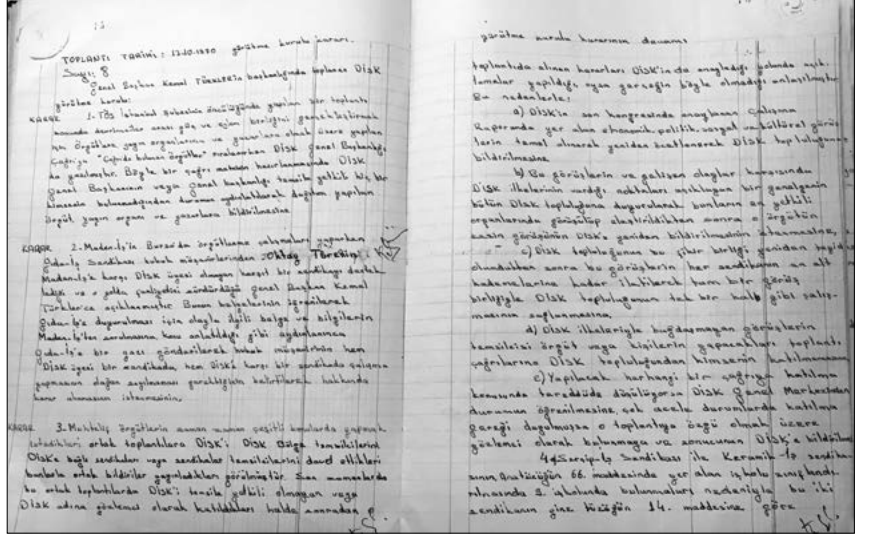 TOPLANTI TARİHİ: 13.10.1970 yürütme kurulu kararı.
Sayı: 8
Genel Başkan Kemal TÜRKLER'in başkanlığında toplanan DİSK
yürütme kurulu:
KARAR 1. TÖS İstanbul Şubesinin öncülüğünde yapılan bir toplantı
konusunda devrimciler arası güç ve eylem birliğini gerçekleştirmek
için örgütlere yayın organlarına ve yazarlara olmak üzere yapılan
çağrıya "Çağrıda bulunan örgütler" sıralanırken DİSK Genel Başkanlığı
da yazılmıştır. Böyle bir çağrı metninin hazırlanmasında DİSK
Genel Başkanının veya genel başkanlığı temsile yetkili hiç bir
kimsenin bulunmadığından durumun aydınlatılarak dağıtım yapılan
örgüt, yayın organı ve yazarlara bildirilmesine.
KARAR 2. Maden-İş'in Bursa'da örgütlenme çalışmaları yaparken
Gıda-İş Sendikası hukuk müşavirlerinden
Maden-İş'e karşı DİSK üyesi olmayan karşıt bir sendikayı destek
ledik ve o yolda faaliyetini sürdürdüğü genel Başkan Kemal
Türkler'ce açıklanmıştır. Bunun belgelerinin öğrenilerek
Gıda-İş'e duyurulması için olayla ilgili belge ve bilgilerin
Maden-İş'ten sorulmasına konu anlatıldığı gibi aydınlanınca
Gıda-İş'e bir yazı gönderilerek hukuk müşavirinin hem
DİSK üyesi bir sendikada, hem DİSK'e karşı bir sendikada çalışma
yapmasının olağan sayılmaması gerektiğinin belirtilerek hakkında
karar alınmasının istenmesinin.
KARAR 3. Muhtelif örgütlerin zaman zaman çeşitli konularda yapmak
istedikleri ortak toplantılara DİSK'i DİSK Bölge temsilcilerini
DİSK'e bağlı sendikaları veya sendikalar temsilcilerini davet ettikleri
bunlarla ortak bildiriler yayınladıkları görülmüştür. Son zamanlarda
bu ortak toplantılarda DİSK'i temsile yetkili olmayan veya
DİSK adına gözlemci olarak katıldıkları halde sonradan
yürütme kurulu kararının devamı
toplantıda alınan kararları DİSK'in de onayladığı yolunda açık
lamalar yapıldığı oysa gerçeğin böyle olmadığı anlaşılmıştır
Bu nedenlerle:
a) DİSK'in son kongresinde onaylanan Çalışma
Raporunda yer alan ekonomik, politik, sosyal ve kültürel görüş
lerin temel alınarak yeniden özetlenerek DİSK topluluğuna
bildirilmesine
b) Bu görüşlerin ve gelişen olaylar karşısında
DİSK ilkelerinin vardığı noktaları açıklayan bir genelgenin
bütün DİSK topluluğuna duyurularak bunların en yetkili
organlarında görüşülüp eleştirildikten sonra o örgütün
kesin görüşünün DİSK'e yeniden bildirilmesinin istenmesine,
c) DİSK topluluğunun bu fikir birliği yeniden
olunduktan sonra bu görüşlerin her sendikanın en alt
kademelerine kadar iletilerek tam bir görüş
birliğiyle DİSK topluluğunun tek bir kalp gibi çalış-
masının sağlanmasına.
d) DİSK ilkeleriyle bağdaşmayan görüşlerin
temsilcisi örgüt veya kişilerin yapacakları toplantı
çağrılarına DİSK topluluğundan kimsenin katılmamasına
e) Yapılacak herhangi bir çağrıya katılma
konusunda tereddüde düşülüyorsa DİSK Genel Merkezinden
durumun öğrenilmesine, çok acele durumlarda katılma
gereği duyulmuşsa o toplantıya özgü olmak üzere
gözlemci olarak bulunmaya ve sonucunun DİSK'e
4. Serçip-İş Sendikası ile Keramik-İş sendika
sının Anatüzüğün 66. maddesinde yer alan işkolu sınıflandı
rılmasında 9. işkolunda bulunmaları nedeniyle bu iki
sendikanın yine tüzüğün 14. maddesine göre